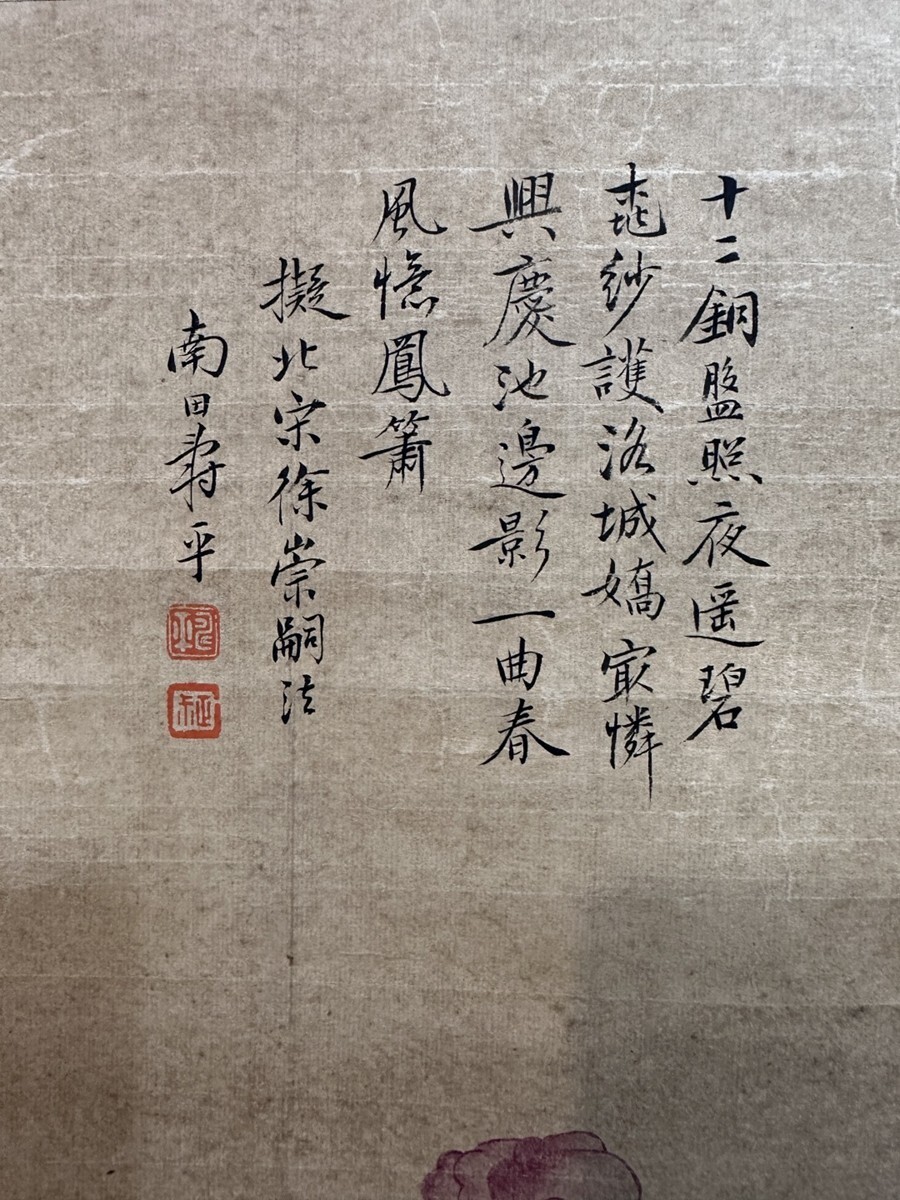 十二銅盤照夜遥碧
桃紗護洛城嬌㝡憐
興慶池邊影一曲春
風憶鳳簫
擬北宋徐崇嗣法
南田壽平
壽平
正叔